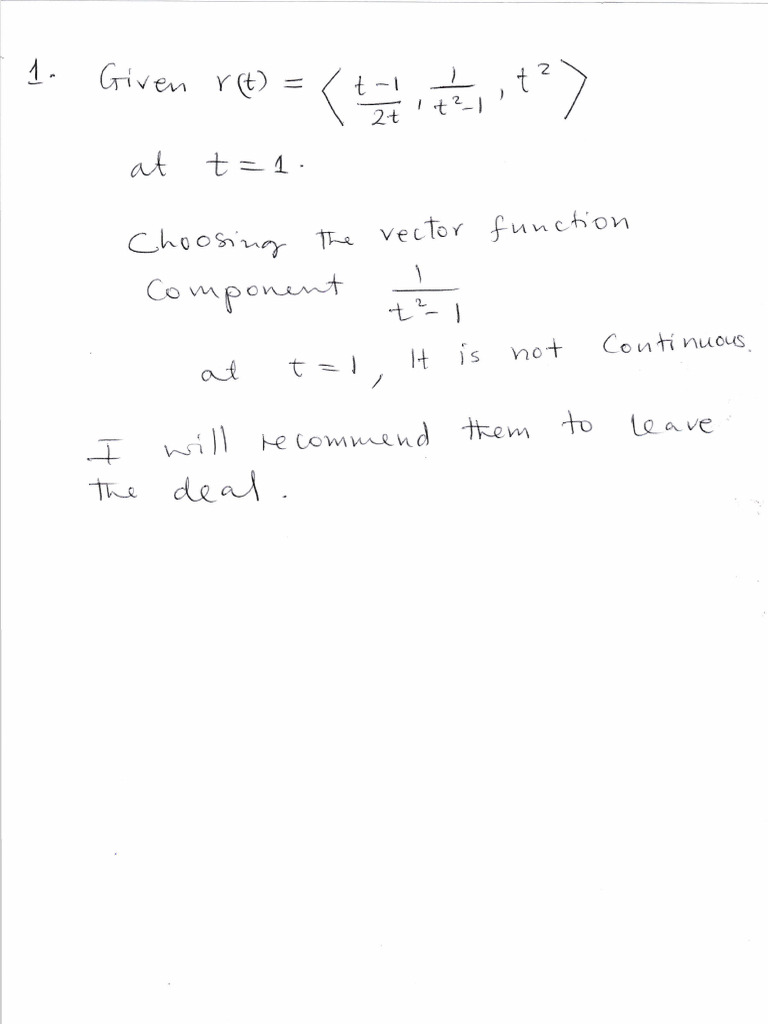 1. Given r(t) = ⟨ (t-1)/(2t), 1/(t²-1), t² ⟩
at t = 1.
Choosing the vector function
Component 1/(t²-1)
at t = 1, It is not Continuous.
I will recommend them to leave
the deal.